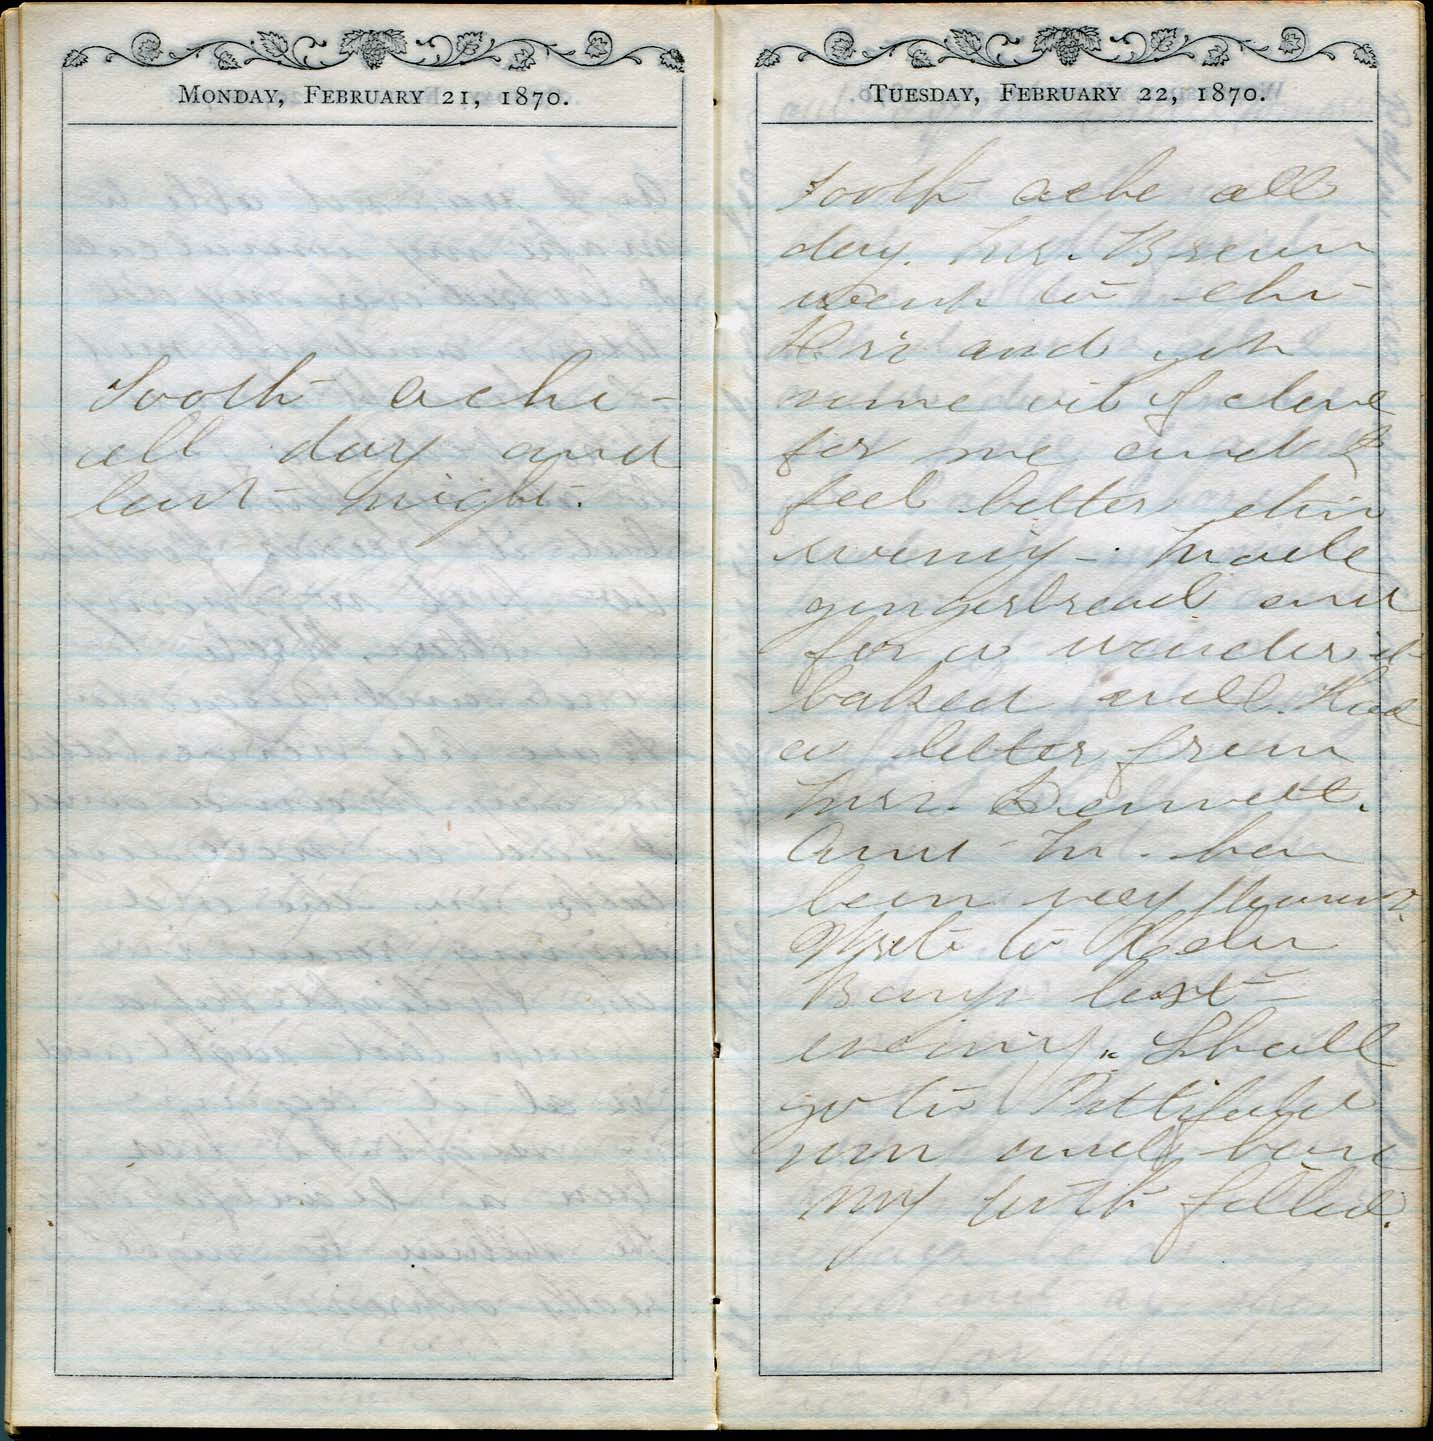 MONDAY, FEBRUARY 21, 1870.
Tooth ache
all day and
last night.
TUESDAY, FEBRUARY 22, 1870.
Tooth ache all
day. Mrs. Brown
went to the
and got
some oil of clove
for me and I
feel better this
evening. Made
gingerbread and
for a wonder it
baked well. Had
a letter from
Mrs. Bennett.
Aunt M. has
been very
Wrote to
last
evening. Shall
go to
and have
my teeth filled.